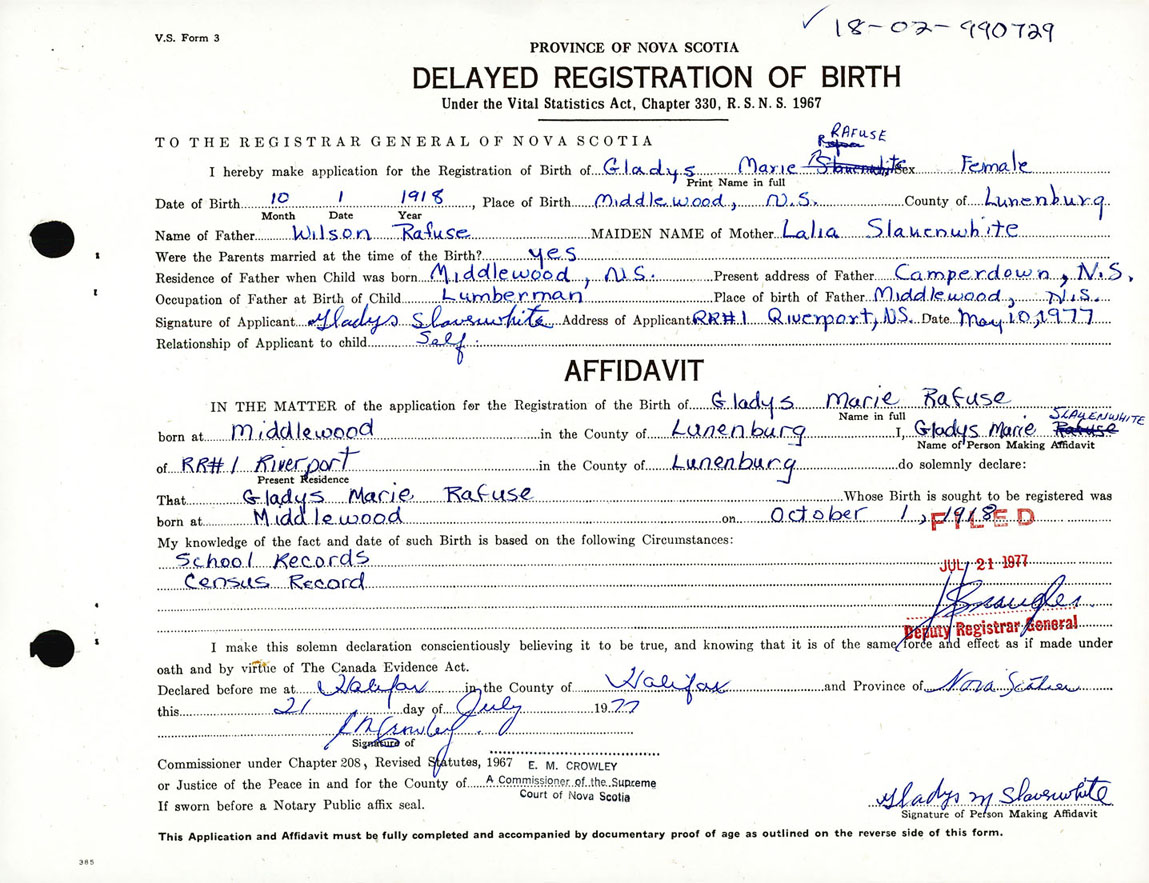 ✓ 18-02-990729
V.S. Form 3
PROVINCE OF NOVA SCOTIA
DELAYED REGISTRATION OF BIRTH
Under the Vital Statistics Act, Chapter 330, R.S.N.S. 1967
TO THE REGISTRAR GENERAL OF NOVA SCOTIA
RAFUSE
I hereby make application for the Registration of Birth of Gladys Marie Slauenwhite Sex Female
Print Name in full
Date of Birth 10 1 1918, Place of Birth Middlewood, N.S. County of Lunenburg
Month Date Year
Name of Father Wilson Rafuse MAIDEN NAME of Mother Lalia Slauenwhite
Were the Parents married at the time of the Birth? yes
Residence of Father when Child was born Middlewood, N.S. Present address of Father Camperdown, N.S.
Occupation of Father at Birth of Child Lumberman Place of birth of Father Middlewood, N.S.
Signature of Applicant Gladys Slavenwhite Address of Applicant RR#1 Riverport, NS. Date May 10, 1977
Relationship of Applicant to child Self.
AFFIDAVIT
IN THE MATTER of the application for the Registration of the Birth of Gladys Marie Rafuse
Name in full SLAUENWHITE
born at Middlewood in the County of Lunenburg I, Gladys Marie Rafuse
Name of Person Making Affidavit
of RR#1 Riverport in the County of Lunenburg do solemnly declare:
Present Residence
That Gladys Marie Rafuse Whose Birth is sought to be registered was
born at Middlewood on October 1, 1918
FILED
My knowledge of the fact and date of such Birth is based on the following Circumstances:
School Records
JUL 21 1977
Census Record
Deputy Registrar General
I make this solemn declaration conscientiously believing it to be true, and knowing that it is of the same force and effect as if made under
oath and by virtue of The Canada Evidence Act.
Declared before me at Halifax in the County of Halifax and Province of Nova Scotia
this 21 day of July 1977
E M Crowley
Signature of
Commissioner under Chapter 208, Revised Statutes, 1967 E. M. CROWLEY
or Justice of the Peace in and for the County of A Commissioner of the Supreme
Court of Nova Scotia
If sworn before a Notary Public affix seal.
Gladys M Slavenwhite
Signature of Person Making Affidavit
This Application and Affidavit must be fully completed and accompanied by documentary proof of age as outlined on the reverse side of this form.
385